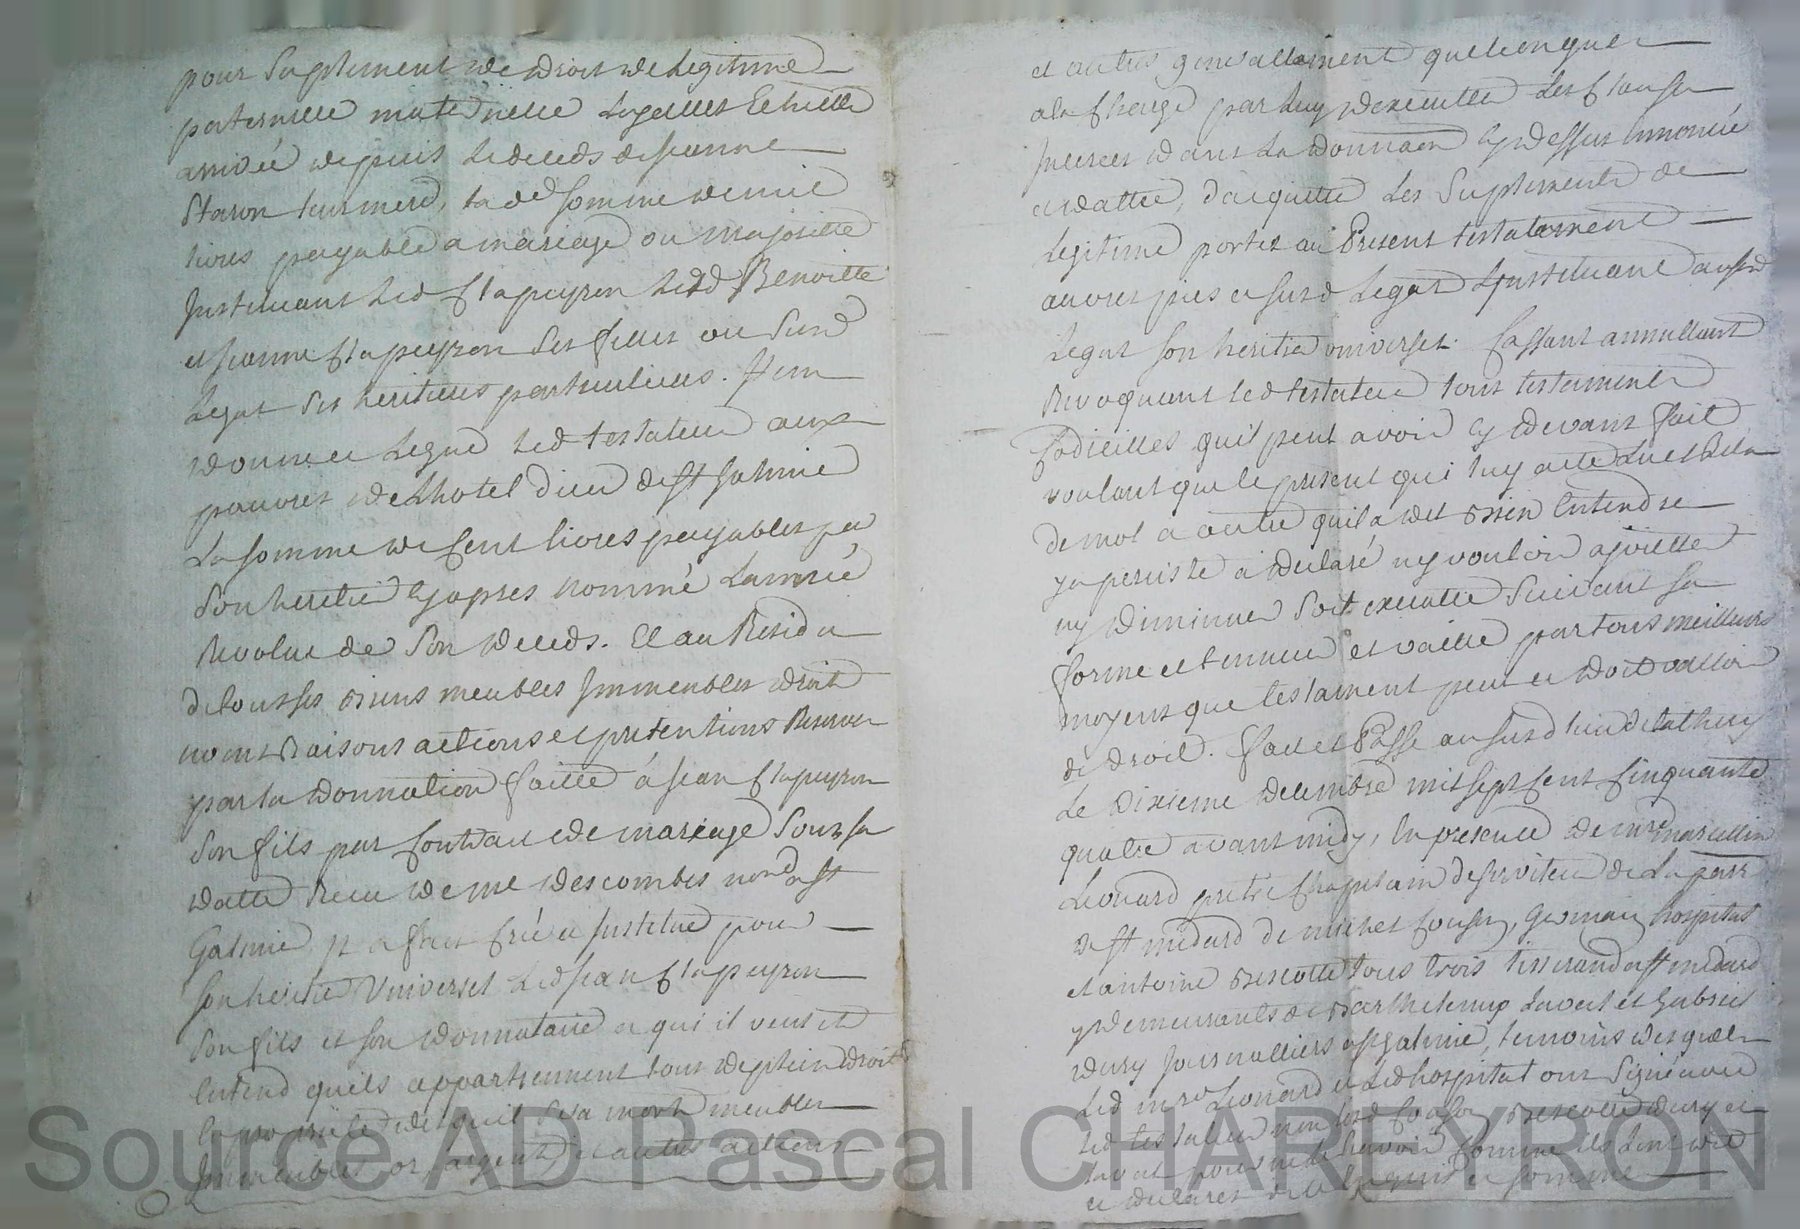 pour Suplement de droit de Legitime
paternelle maternelle Laquelle Echutte
arrivée depuis Le deceds de Jeanne
Staron leur mere, la de somme de mil
livres payable a mariage ou majoritté
Instituant led Clapeyron lesd Benoitte
et Jeanne Clapeyron Ses filles au Susd
Legat Ses heritieres particulieres. Item
donne et Legue led testateur aux
pauvres de Lhotel dieu de St Galmie
La somme de Cent livres payables par
Son heritié Cy apres nommé Lannée
Revolue de Son deceds. Et au Residu
de tous Ses biens meubles Immeubles droit
noms Raisons actions et pretentions Reserver
par la donnation faitte á Jean Clapeyron
Son fils par Contract de mariage Sous Sa
datte Recu de me descombes nore a St
Galmié Il a fait Créé et Institué pour
Son heritié Universel Led Jean Clapeyron
Son fils et Son donnataire a qui il veut et
Entend quils appartiennent tous de plein droit
En proprieté des quil Sera mort meubles
Immeubles or, argent, et autres actions
et autres generallement quelconques
a la Charge par Luy dexecutter Les Clauses
Inserees dans La donnaon Cy dessus Ennoncée
et dattée, dacquitter Les Suplements de
Legitime portez au Present testatament
œuvres pies et susd Legat Linstituant ausd
Legat Son heritié universel. Cassant annullant
Revoquant led testateur tous testaments
Codicilles quil peut avoir Cy devant fait
voulant que le present qui luy a eté Lu et Relu
de mot a autre quil a dit bien Entendre
y a persisté a declaré ny vouloir ajoutter
ny diminuer Soit executté Suivant Sa
forme et teneur et vaille par tous meilleurs
moyens que testament peut et doit valloir
de droit. fait et Passé au susd lieu de
Le dixieme decembre mil sept cent cinquante
quatre avant midy, En presence de mre marcellin
Leonard pretre Chapelain desserviteur de La parr
de St medard de michel Couson, Germain hospital
et antoine tous trois tisserands a St medard
y demeurants de Barthelemy Laval et Gabriel
dury Journalliers a St Galmié, temoins desquels
Led mre Leonard et Led hospital ont Signé avec
led testateur non lesd Couson dury et
Laval pour ne Le Sçavoir Comme ils lont dit
et declarés de ce Enquis et Sommé
Source AD Pascal CHAREYRON